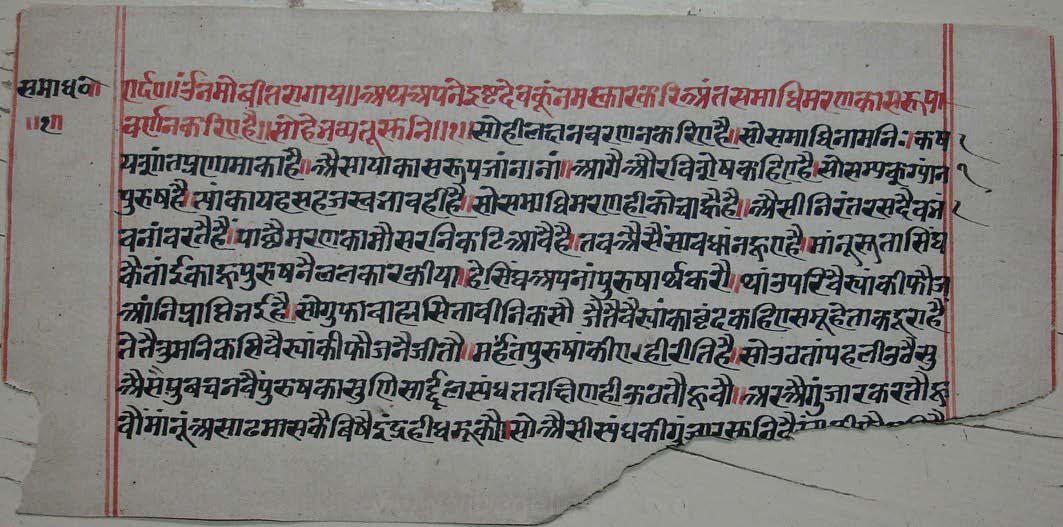 समाधवो
॥१॥
॥र्द०॥ंर्उनमोवीतरागाय॥अथअपनेइष्टदेवकूंनमस्कारकरिअंतसमाधिमरणकासरूप
वर्णनकरिएहै॥सोहेभव्यतूसुनि॥१॥सोहीलछनवरणनकरिएहै॥सोसमाधिनामनिःकष
यकाहै॥अैसायाकासरूपजांनानां॥आगैअौरविशेषकहिएहै॥सोसम्यकग्यांन
पुरुषहै॥त्यांकायहसहजस्वभावहीहै॥सोसमाधिमरणहीकोचाहैहै॥अैसीनिरंतरसदैवभ
वनांवरतैहै॥पाछैमरणकामौसरनिकटिआवैहै॥तवअैसैंसावधांनहूएहै॥मांनूसूतासिंघ
कैतांईकाहूपुरुषनैललकारकीया॥हेसिंघअपनांपुरुषार्थकरौ॥थांउपरिवैर्यांकीफौज
आंनिप्राप्तिभईहै॥सोगुफावाह्यसितावीनिकसौ जैतैवैर्यांकाव्रंदकहिएसमूहेताकदूराहै
तेतैतुमनिकसिवैर्यांकीफौजनैजीतौ॥महंतपुरुषांकीएहीरीतिहै॥सोउठतांपहलीउठैसु
अैसैंपुवचनवैपुरुषकासुणिसार्दूलस्यंघततछिणहीऊठतौहूवौ॥अरअैगुंजारकरतौहू
वौमांनूंअसाढमासकैविषैइंद्रहीधमूकौ॥सोअैसीस्यंघकीगुंजारसुनि